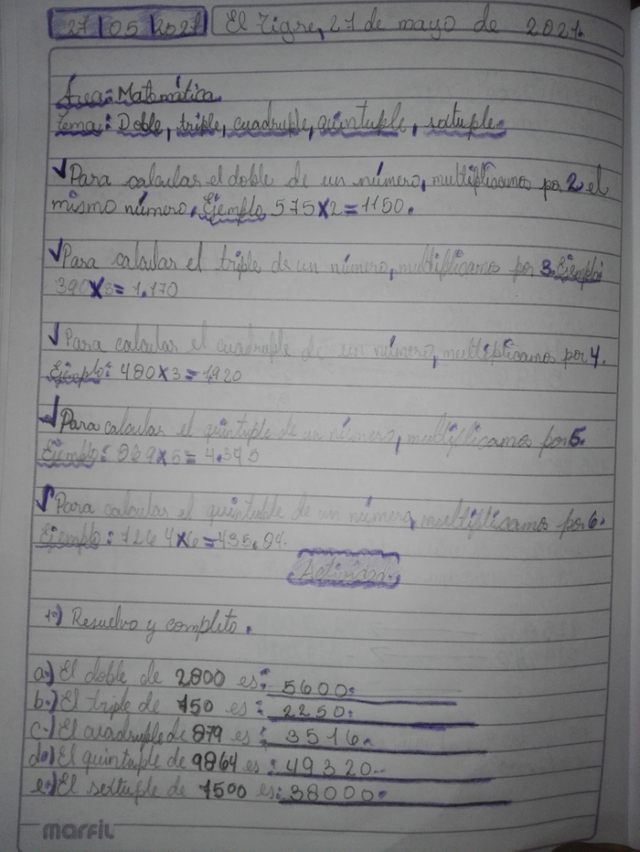 27 05 2021 El Tigre, 27 de mayo de 2021.
Área: Matemática
Tema: Doble, triple, cuadruple, quintuple, sextuple.
Para calcular el doble de un número, multiplicamos por 2 el
mismo número. Ejemplo 575x2=1150.
Para calcular el triple de un número, multiplicamos por 3. Ejemplo
390x3= 1.170
Para calcular el cuadruple de un número, multiplicamos por 4.
Ejemplo: 480x3=1920
Para calcular el quintuple de un número, multiplicamos por 5.
Ejemplo: x5= 4.345
Para calcular el quintuble de un número, multiplicamos por 6.
Ejemplo: x6=
Actividad.
1º) Resuelvo y completo.
a.) El doble de 2800 es: 5600.
b.) El triple de 750 es: 2250.
c.) El cuadruple de 879 es: 3516.
d.) El quintuple de 9864 es: 49320.
e.) El sextuple de 7500 es: 38000.
marfil